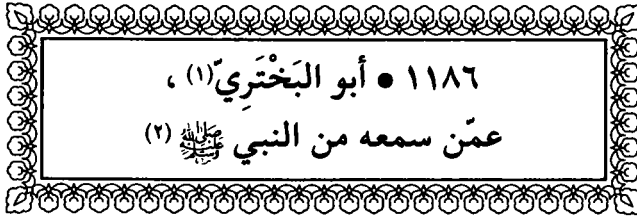 ١١٨٦ • أبو البَخْتَرِيّ(١) ،
عمّن سمعه من النبي ﷺ (٢)